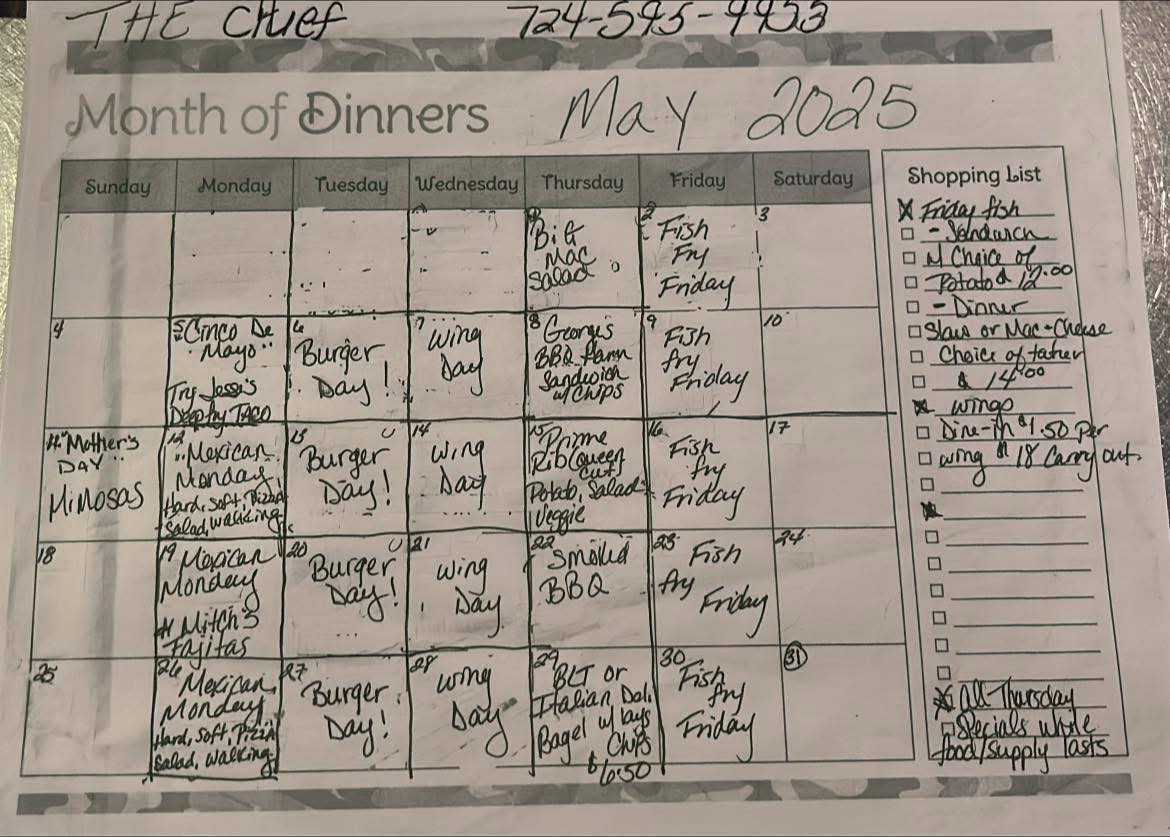 THE Chief 724-595-9953
Month of Dinners May 2025
Sunday Monday Tuesday Wednesday Thursday Friday Saturday
1
Big
Mac
Salad
2
Fish
Fry
Friday
3
4
5 Cinco De
Mayo
Try Jessi's
Deep fry TACO
6
Burger
Day!
7
Wing
Day
8
George's
BBQ Hamm
Sandwich
w/ Chips
9
Fish
fry
Friday
10
11 "Mother's
DAY"
MiMosas
12
"Mexican
Monday
Hard, Soft, Pizza
Salad, Walking
13
Burger
Day!
14
Wing
Day
15
Prime
Rib (Queen
Cut)
Potato, Salad
Veggie
16
Fish
fry
Friday
17
18
19 Mexican
Monday
# Mitch's
Fajitas
20
Burger
Day!
21
Wing
Day
22
Smoked
BBQ
23
Fish
fry
Friday
24
25
26
Mexican
Monday
Hard, Soft, Pizza
Salad, Walking
27
Burger
Day!
28
Wing
Day
29
BLT or
Italian Deli
Bagel w/ lays
Chips
$6.50
30
Fish
fry
Friday
31
Shopping List
Friday fish
- Sandwich
Choice of
Potato $ 12.00
- Dinner
Slaw or Mac + Cheese
Choice of tater
$ 14.00
wings
Dine-In $1.50 Per
wing $ 18 Carry out
All Thursday
Specials while
food/supply lasts